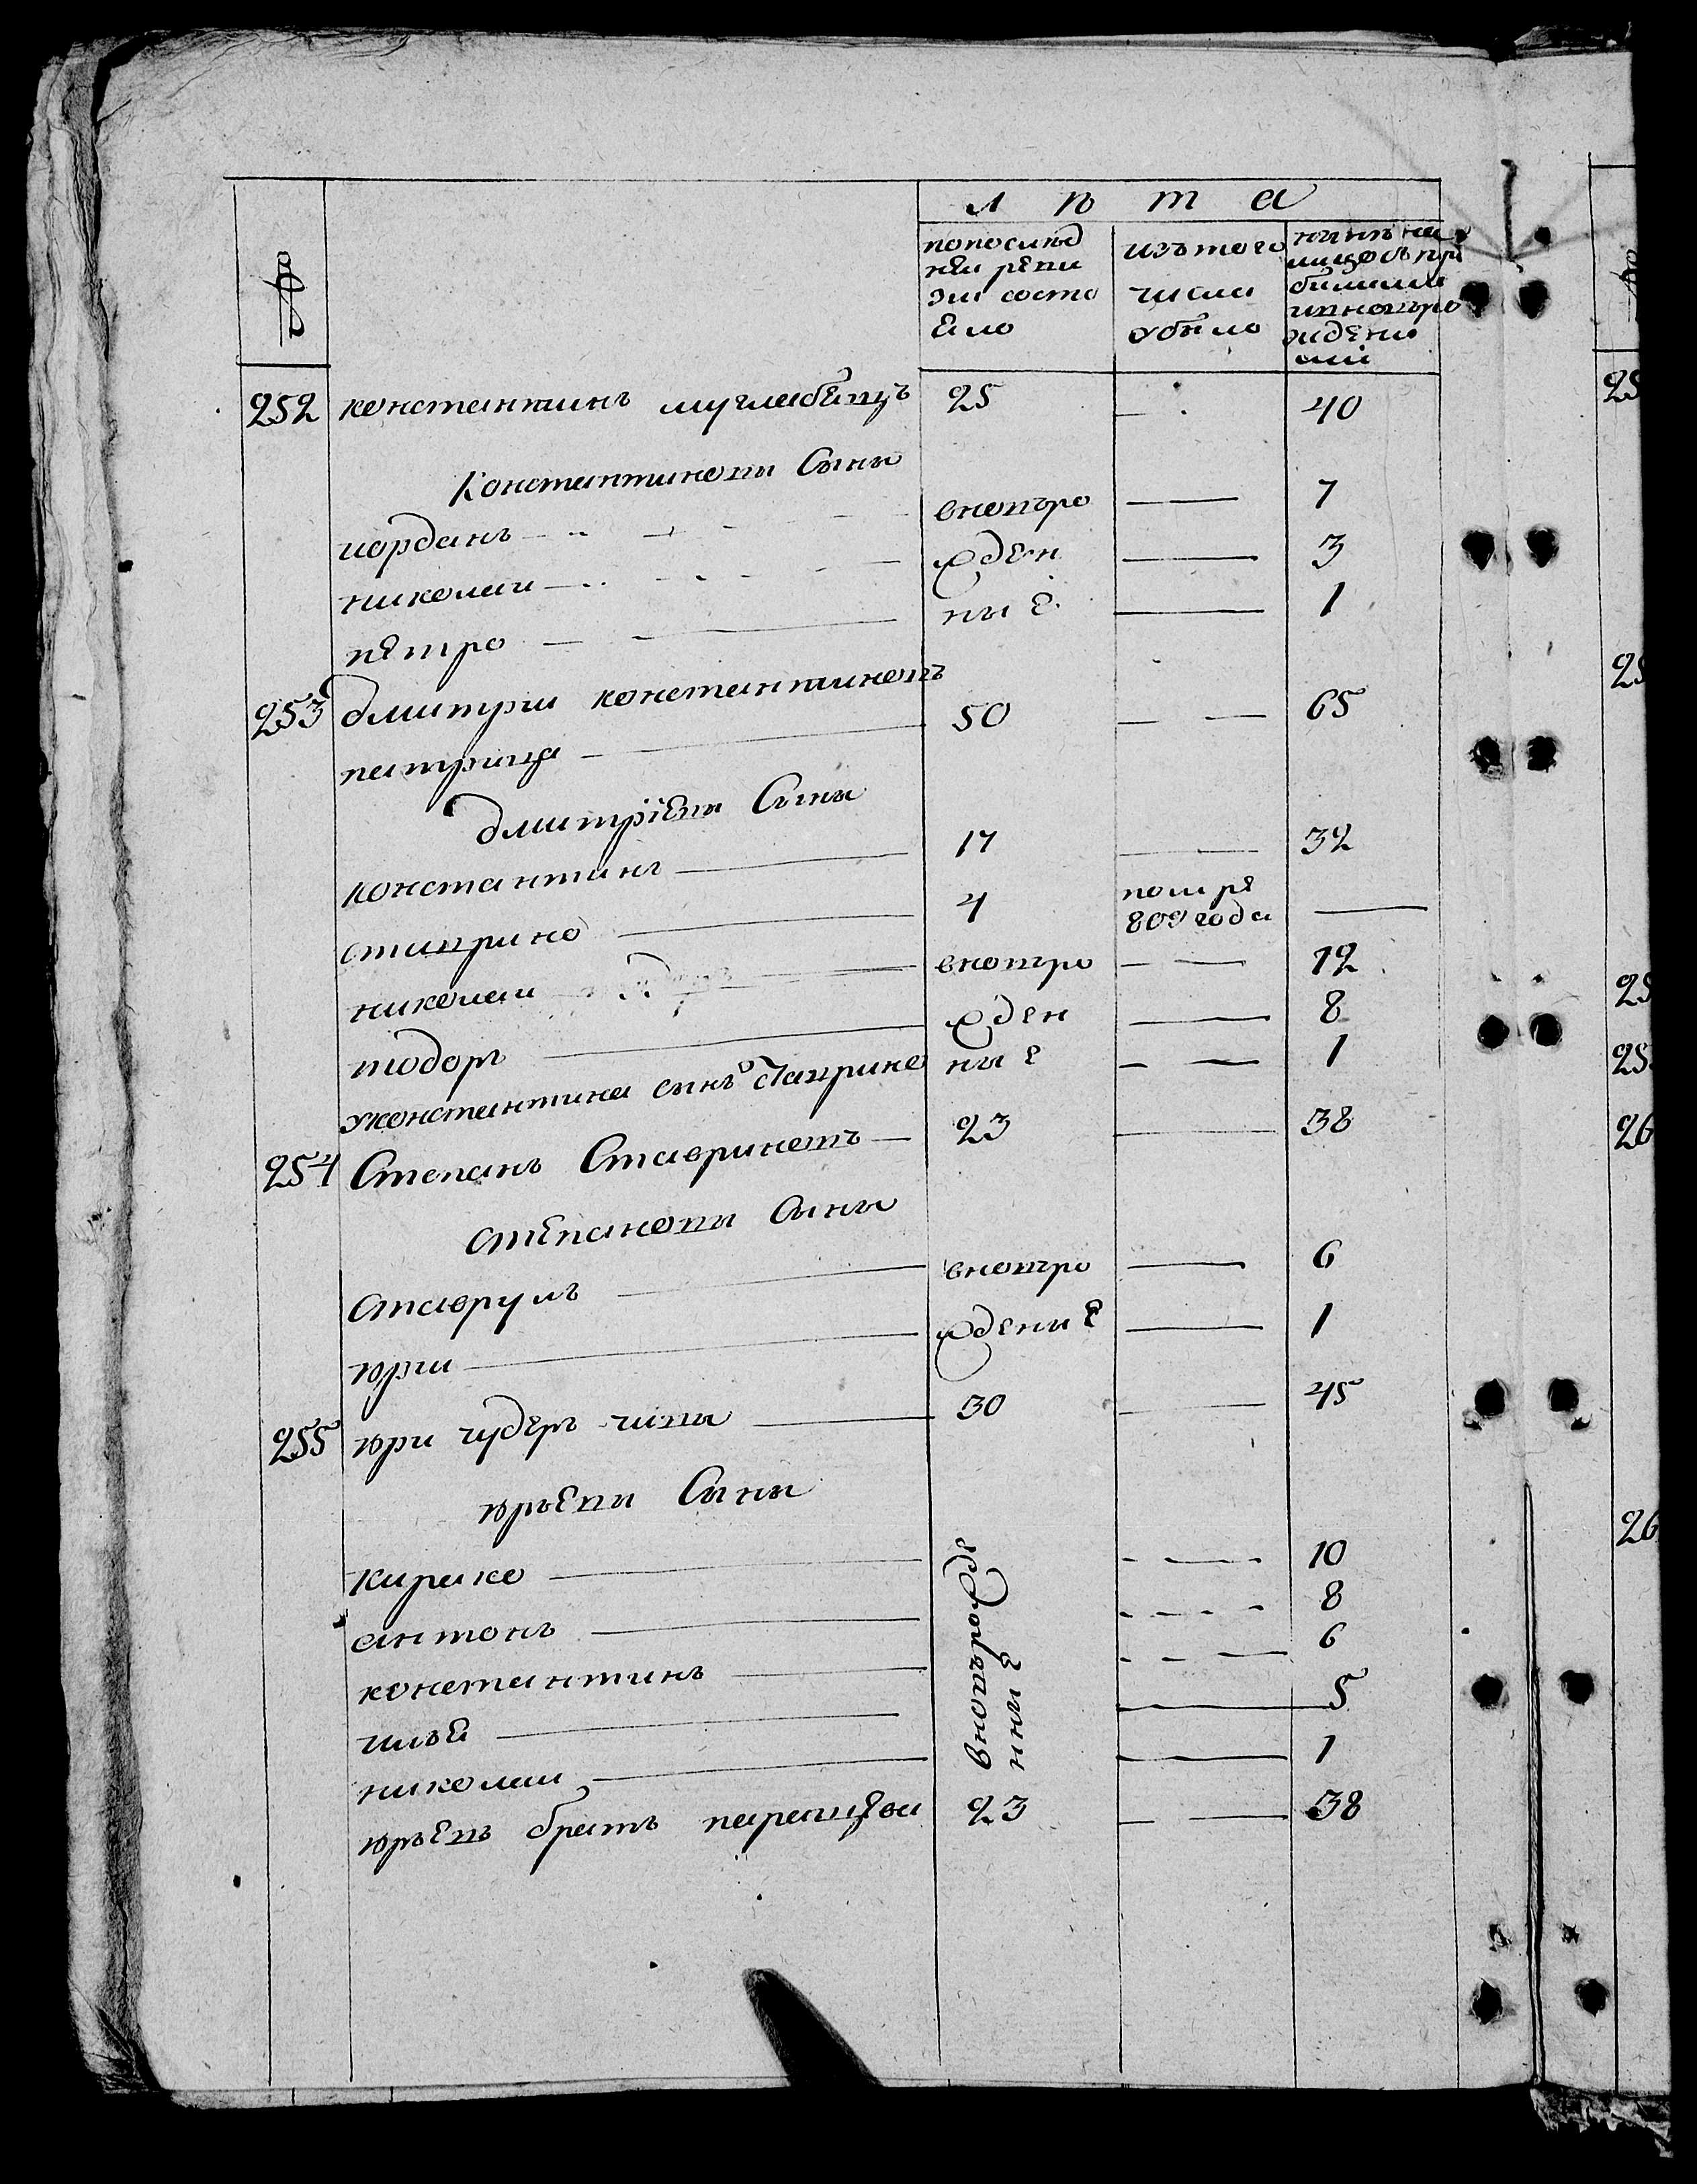 лѣта
№
попослѣд
неи реви
зіи состо
ело
изъ того
числа
убыло
нынѣ на
лицо съ при
былыми
ивновъро
жденн
ыми
252 константинъ муглабѣтцъ 25 — 40
Константиновы Сыны
иорданъ — вновъро — 7
николаи — жден — 3
петро — ные — 1
253 дмитрии константиновъ
патрица — 50 — 65
дмитріевы Сыны
константинъ — 17 — 32
ставрино — 4 помре
809 года —
николаи — вновъро — 12
тодоръ — жден — 8
уконстантина сынъ ставрино ные — 1
254 Степанъ Ставриновъ — 23 — 38
степановы Сыны
ставрулъ — вновъро — 6
юрии — ждение — 1
255 юри чудеръ чипы — 30 — 45
юрьевы Сыны
кирико — 10
антонъ — 8
константинъ — 6
илья — 5
николаи — 1
вновъ рожде
нные
юрьевъ братъ парашева 23 — 38
25
25
25
25
26
26